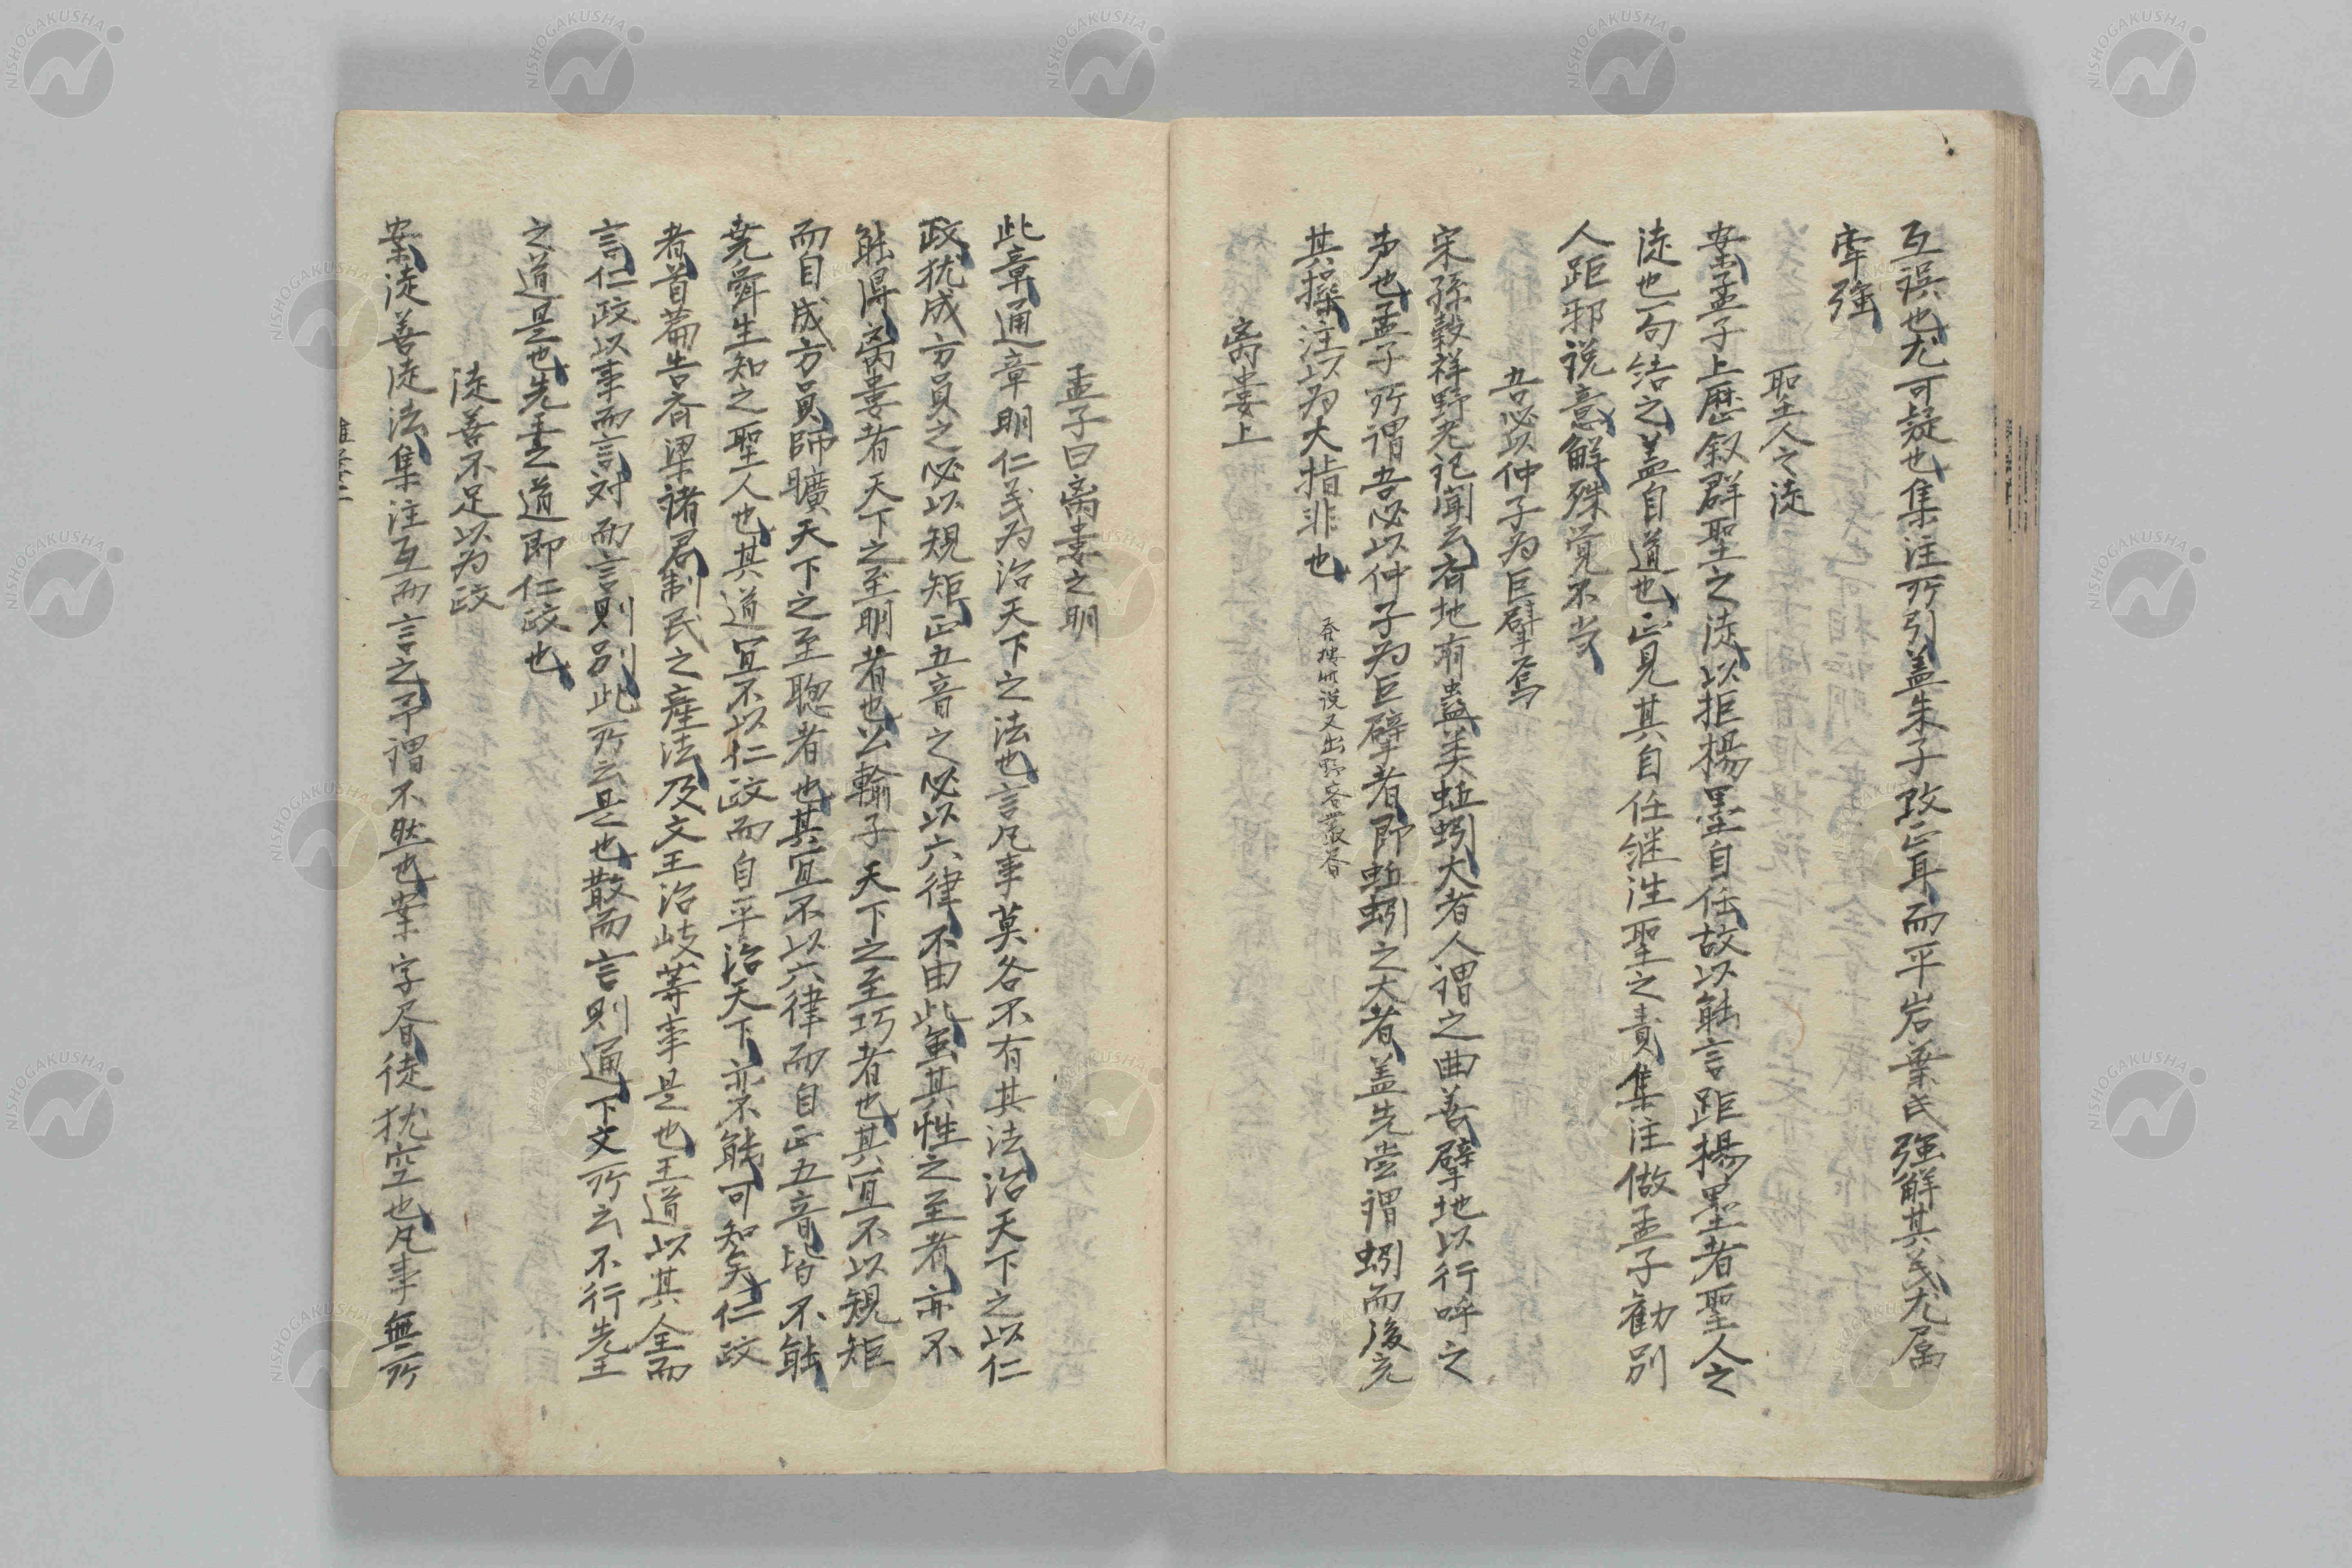 互誤也尤可疑也集注所引盖朱子改正耳而平岩葉氏強解其義尤属
牽強
聖人之徒
案孟子上歴叙群聖之徒以拒楊墨自任故以能言距楊墨者聖人之
徒也一句結之盖自道也正見其自任継往聖之責集注做孟子勧別
人距邪説意解殊覚不当
吾必以仲子為巨擘焉
宋孫穀祥野老記聞云齊地有蟲类蚯蚓大者人謂之曲善擘地以行呼之
声也孟子所謂吾必以仲子為巨擘者即蚯蚓之大者盖先尝謂蚓而後充
其操注以為大指非也
此説又出野客叢
离婁上
孟子曰离婁之明
此章通章明仁義為治天下之法也言凡事莫各不有其法治天下之以仁
政犹成方員之必以規矩正五音之必以六律不由此虽其性之至者亦不
能得离婁者天下之至明者也公輸子天下之至巧者也其宜不以規矩
而自成方員師曠天下之至聡者也其宜不以六律而自正五音皆不能
尭舜生知之聖人也其道宜不以仁政而自平治天下亦不能可知矣仁政
者首篇告斉梁諸君制民之産法及文王治岐等事是也王道以其全而
言仁政以事而言対而言則別此所云是也散而言則通下文所云不行先王
之道是也先王之道即仁政也
徒善不足以為政
案徒善徒法集注互而言之予謂不然也案字昏徒犹空也凡事無所